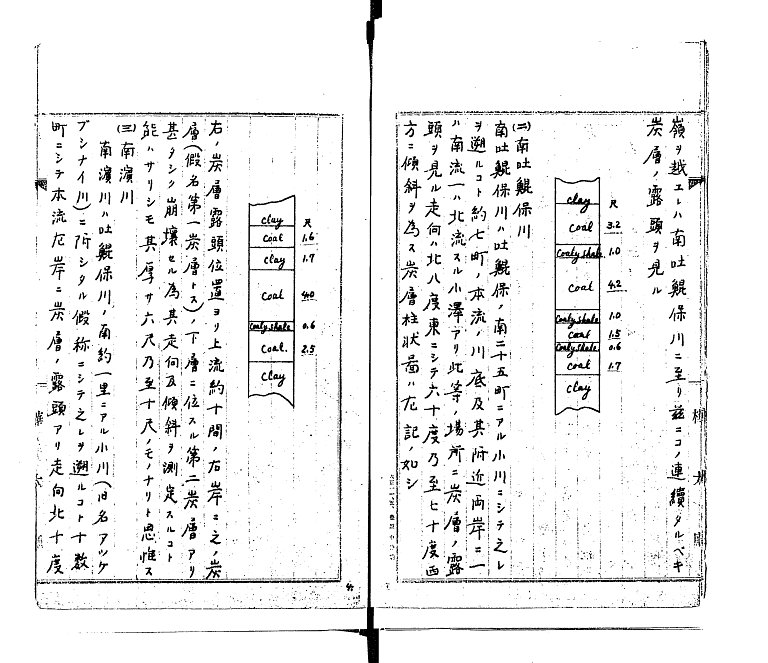 嶺ヲ越エレハ南吐鯤保川ニ至リ茲ニコノ連續タルベキ
炭層ノ露頭ヲ見ル
尺
clay
coal 3.2
Coaly shale 1.0
coal 4.2
Coaly shale 1.0
coal 1.5
Coaly shale 0.6
coal 1.7
clay
(二)南吐鯤保川
南吐鯤保川ハ吐鯤保ノ南二十五町ニアル小川ニシテ之レ
ヲ遡ルコト約七町ノ本流ノ川底及其附近両岸ニ一
ハ南流一ハ北流スル小澤アリ此等ノ場所ニ炭層ノ露
頭ヲ見ル走向ハ北八度東ニシテ六十度乃至七十度西
方ニ傾斜ヲ為ス炭層柱状圖ハ左記ノ如シ
尺
clay
coal 1.6
clay 1.7
coal 4.0
Coaly shale 0.6
coal. 2.5
clay
右ノ炭層露頭位置ヨリ上流約十間ノ右岸ニ之ノ炭
層(假名第一炭層トス)ノ下層ニ位スル第二炭層アリ
甚タシク崩壊セル為其走向及傾斜ヲ測定スルコト
能ハサリシモ其厚サ六尺乃至十尺ノモノナリト思惟ス
(三)南濱川
南濱川ハ吐鯤保川ノ南約一里ニアル小川(旧名アツケ
プシナイ川)ニ附シタル假称ニシテ之レヲ遡ルコト十数
町ニシテ本流左岸ニ炭層ノ露頭アリ走向北十度